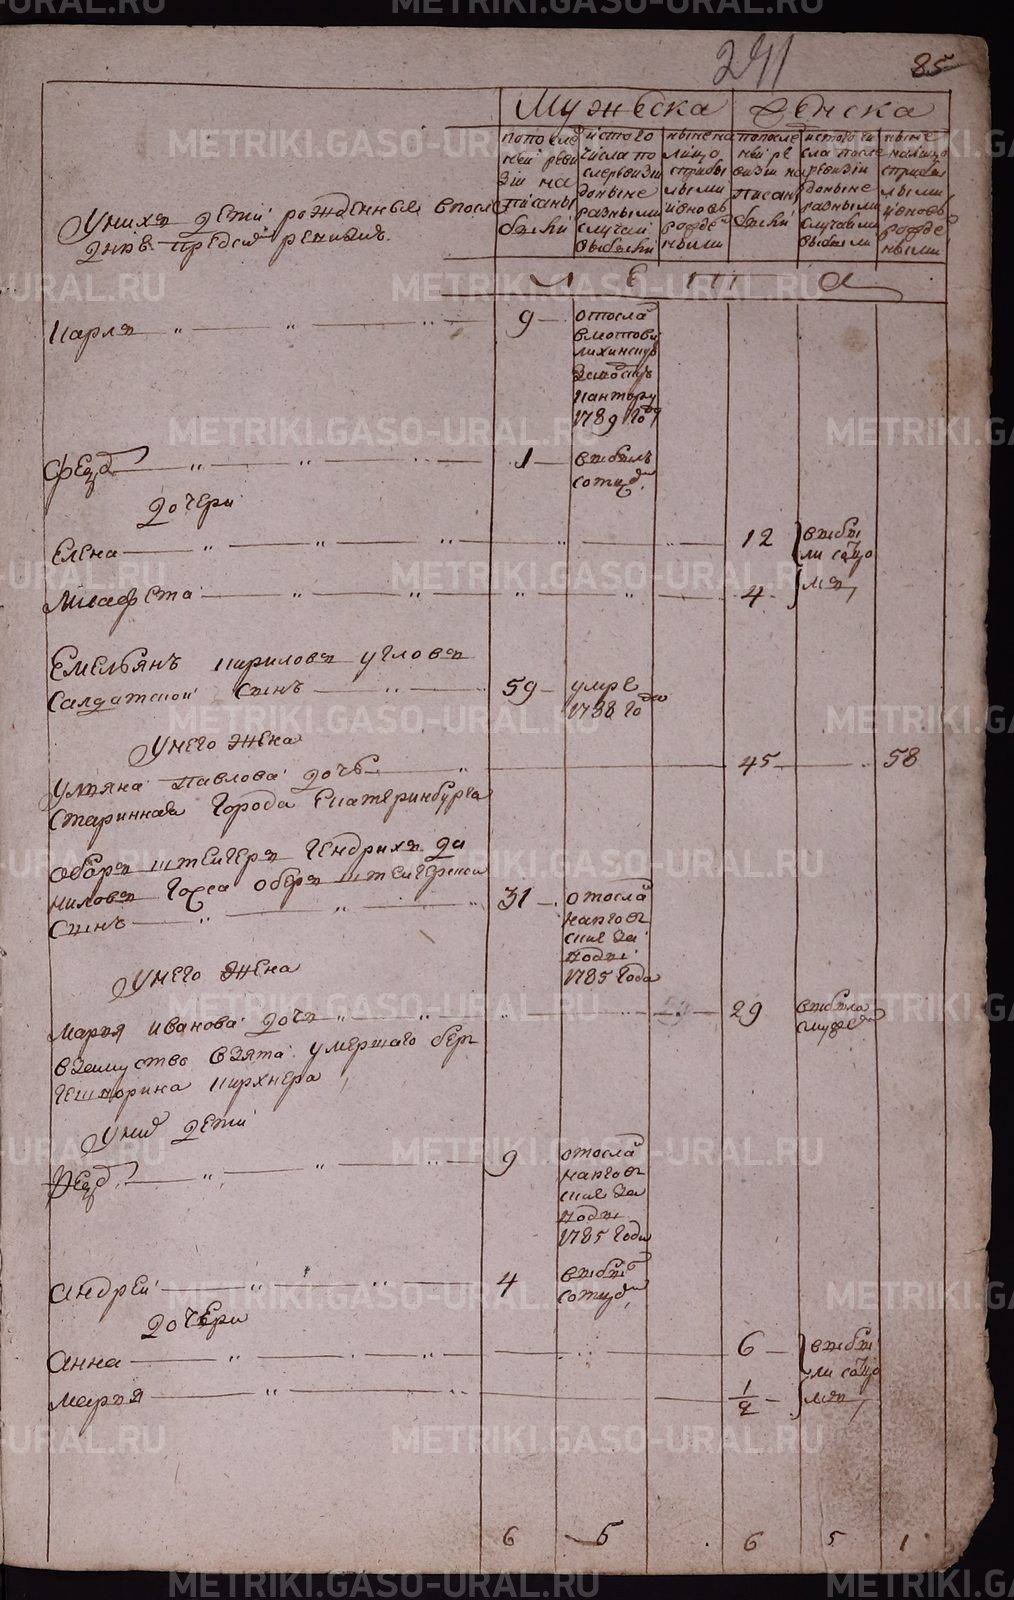 241
85
Мужеска Женска
по последней ревизии написаны были
из того числа после ревизии доныне разными случаи выбыли
ныне на лицо с прибылыми и вновь рожденными
по последней ревизии написаны были
из того числа после ревизии доныне разными случаи выбыли
ныне на лицо с прибылыми и вновь рожденными
У них дети рожденные в после
днюю пред сим ревизию
лета
Карл 9 отосла
в мотови
лихинскую
заводскую
кантору
1789 год
Фёдор 1 выбыл
с отцом
дочери
Елена 12 выбы
ли с отцо
4 м
Емельян Кирилов Углов
салдатской сын 59 умре
1788 года
У него жена
Ульяна Павлова дочь 45 58
старинная города Екатеринбурга
обер штейгер Гендрих Да
нилов обер штейгерской
сын 31 отосла
1785 года
У него жена
Марья Иванова дочь 29 выбыла
с мужем
в замуство взята умершаго берг
гешворина Кирхнера
У них дети
Фёдор 9 отосла
1785 года
Андрей 4 выбыл
с отцом
дочери
Анна 6 выбы
ли с отцо
Марья 1/2 м
6 5 6 5 1
METRIKI.GASO-URAL.RU